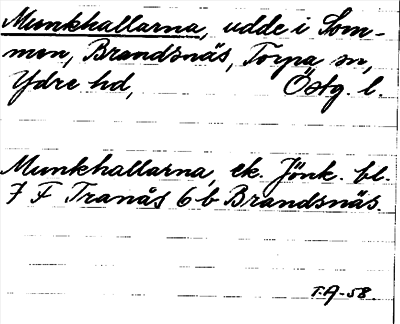 Munkhallarna, udde i Som-
men, Brandsnäs, Torpa sn,
Ydre hd, Östg. l.
Munkhallarna, ek. Jönk. bl.
7 F Tranås 6 b Brandsnäs.
T.A-58.